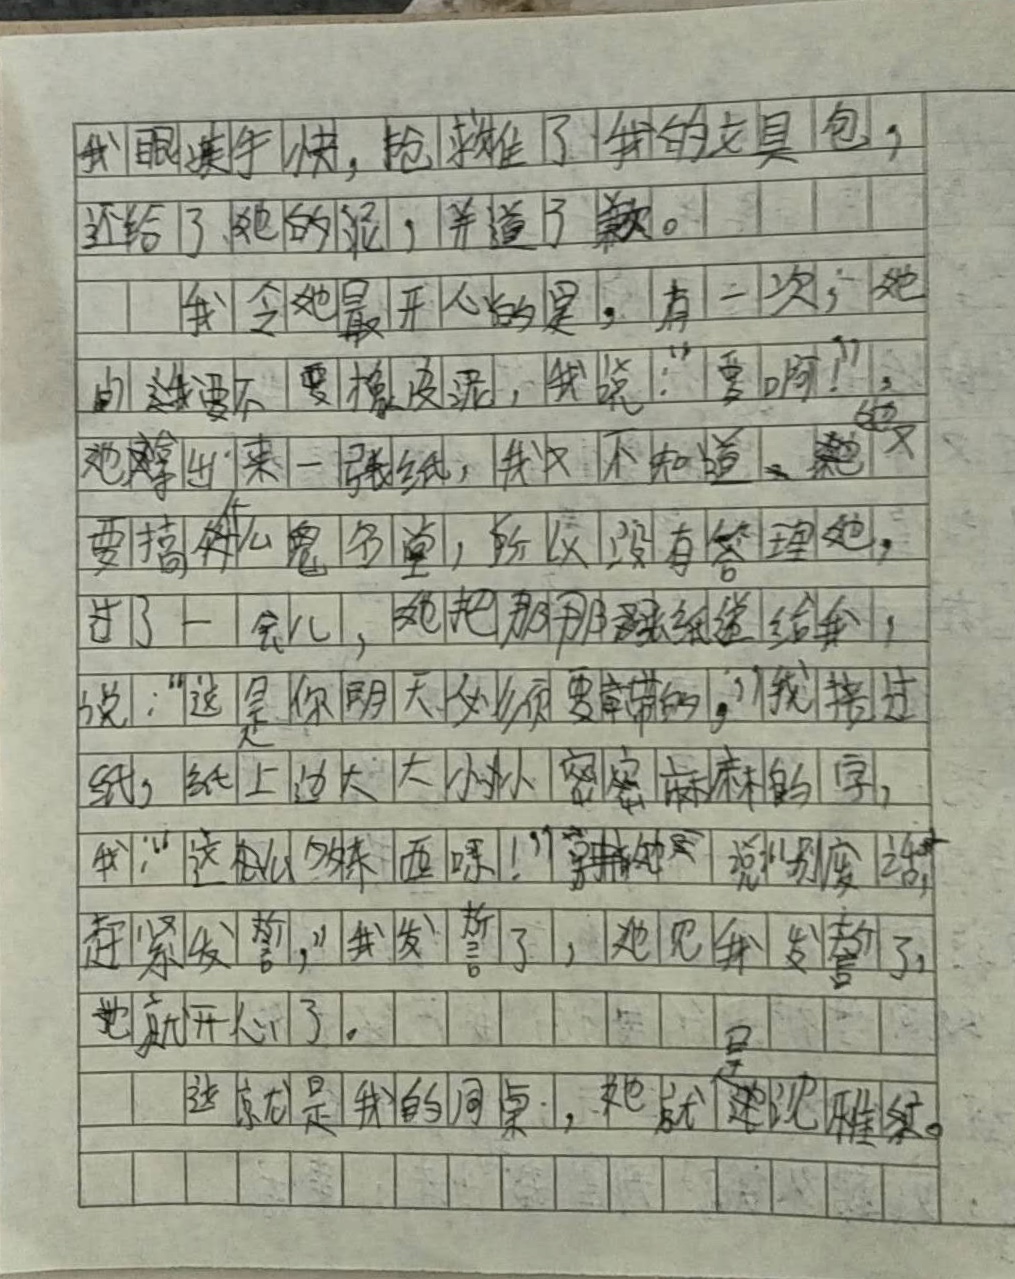 我眼疾手快，抢救了我的文具包，
还给了她的泥，并道了歉。
我令她最开心的是，有一次，她
问我要不要橡皮泥，我说：“要啊！”，
她拿出来一张纸，我又不知道、她又
要搞什么鬼名堂，所以没有答理她，
过了一会儿，她把那张纸递给我，
说：“这是你明天必须要带的，”我接过
纸，纸上边大大小小密密麻麻的字，
我：“这么多东西嘿！”她说“别废话，
赶紧发誓，”我发誓了，她见我发誓了，
她就开心了。
这就是我的同桌，她就是沈雅